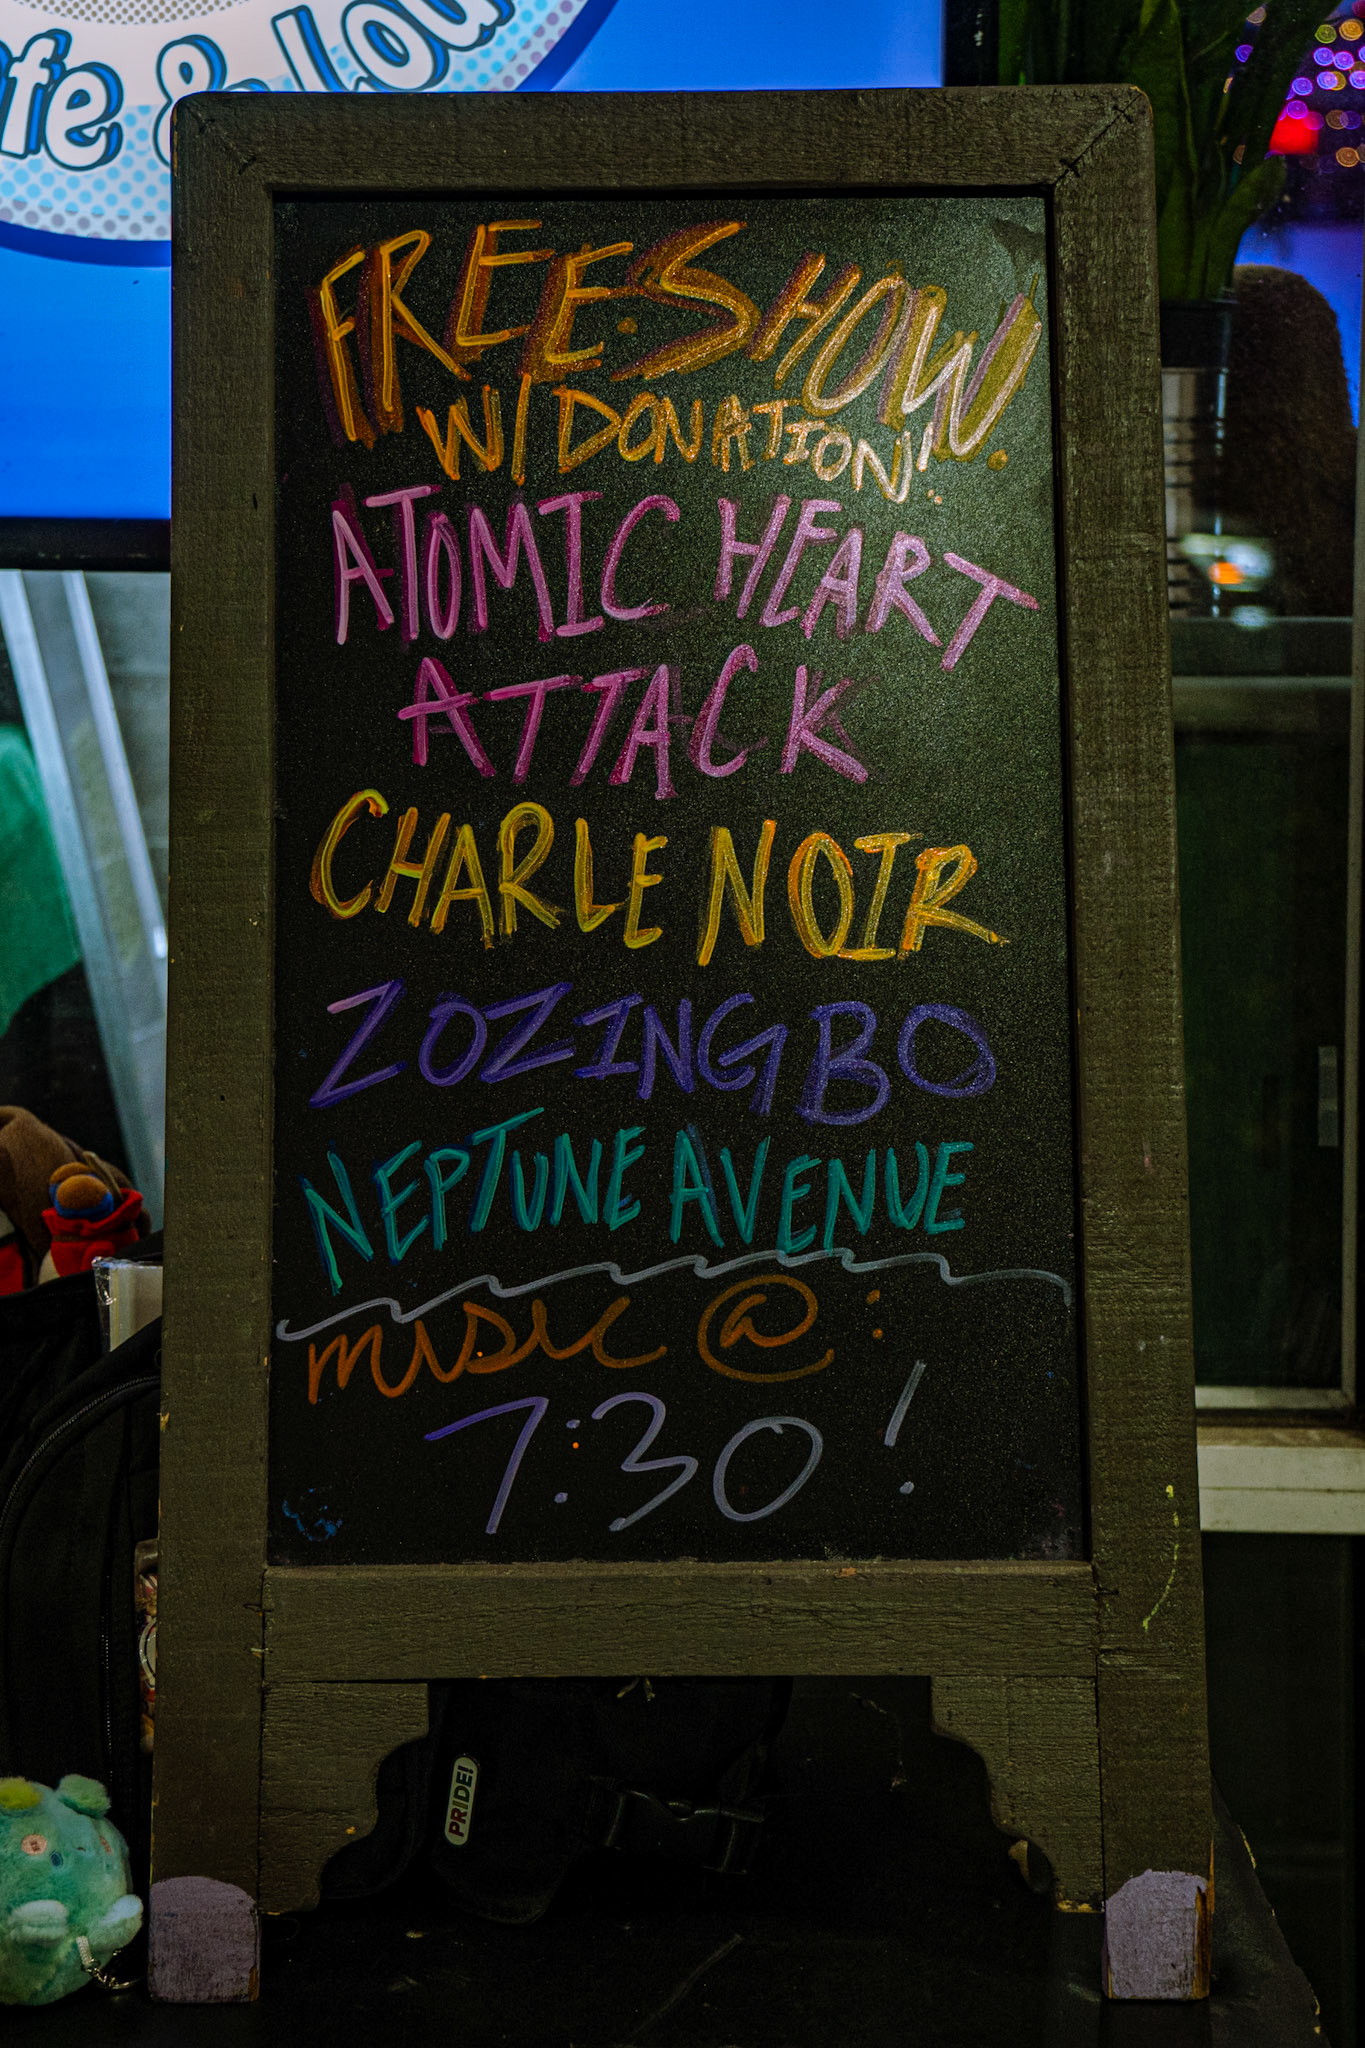 & Lou
FREE SHOW.
W/ DONATION!
ATOMIC HEART
ATTACK
CHARLE NOIR
ZOZINGBO
NEPTUNE AVENUE
music @:
7:30!
PRIDE!